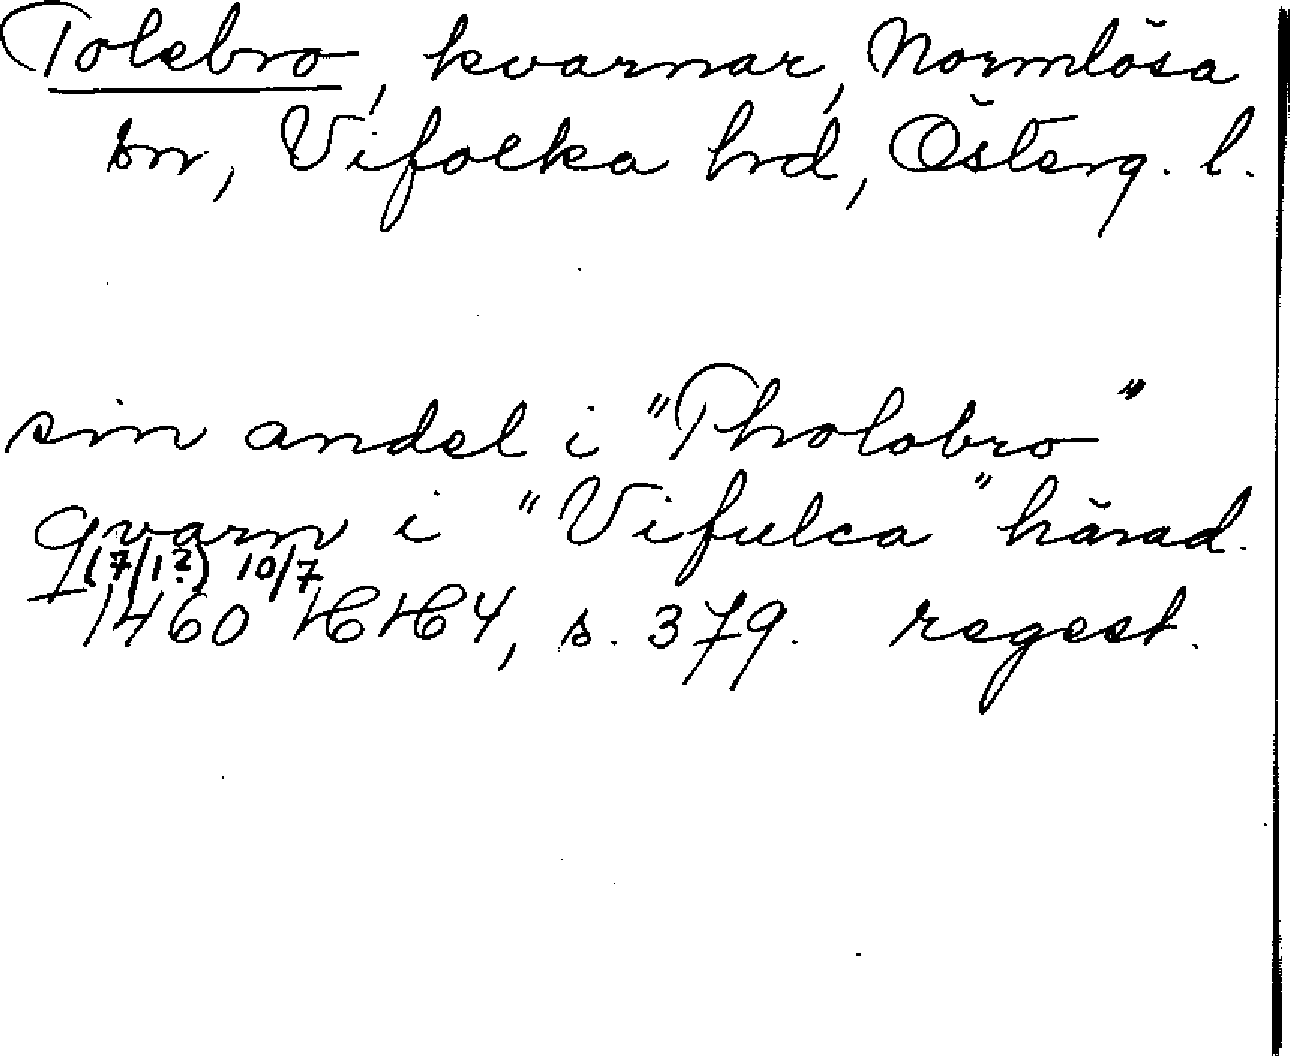 Tolebro, kvarnar, Normlösa
sn, Vifolka hrd, Österg. l.
sin andel i "Tholobro"
qvarn i "Vifulca" härad.
(7/1?) 10/7
1460 HH 4, s. 379. regest.